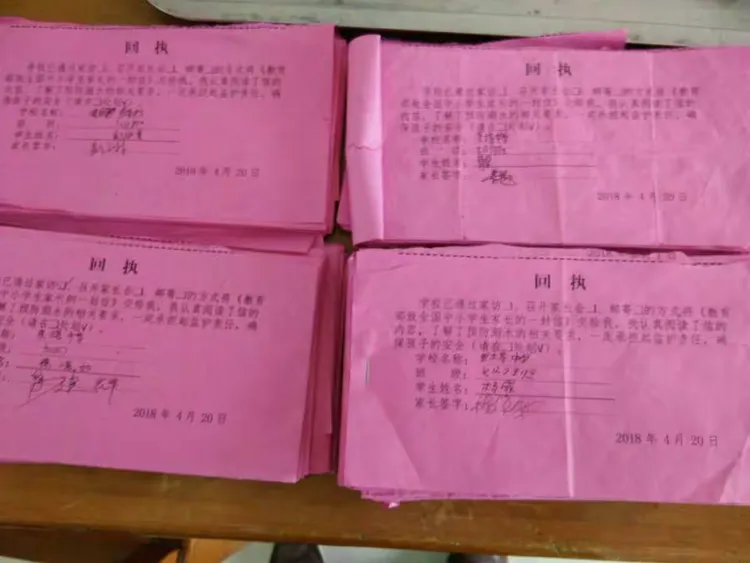 回 执
学校已通过家访□、召开家长会□、邮寄□的方式将《教育
部致全国中小学生家长的一封信》交给我，我认真阅读了信的
内容，了解了预防溺水的相关要求，一定承担起监护责任，确
保孩子的安全（请在□处划√）
学校名称：
班 级：
学生姓名：
家长签字：
2018 年 4 月 20 日
回 执
学校已通过家访□、召开家长会□、邮寄□的方式将《教育
部致全国中小学生家长的一封信》交给我，我认真阅读了信的
内容，了解了预防溺水的相关要求，一定承担起监护责任，确
保孩子的安全（请在□处划√）
学校名称：
班 级：
学生姓名：
家长签字：
2018 年 4 月 20 日
回 执
已通过家访□、召开家长会□、邮寄□的方式将《教育
中小学生家长的一封信》交给我，我认真阅读了信的
了解了预防溺水的相关要求，一定承担起监护责任，确
的安全（请在□处划√）
称：
级：
名：
2018 年 4 月 20 日
回 执
学校已通过家访□、召开家长会□、邮寄□的方式将《教育
部致全国中小学生家长的一封信》交给我，我认真阅读了信的
内容，了解了预防溺水的相关要求，一定承担起监护责任，确
保孩子的安全（请在□处划√）
学校名称：
班 级：
学生姓名：
家长签字：
2018 年 4 月 20 日